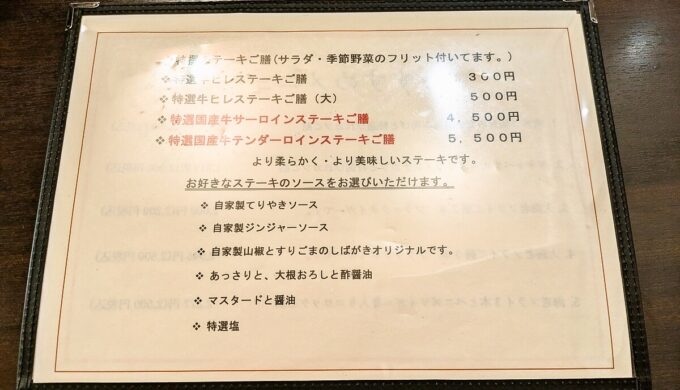 ステーキご膳(サラダ・季節野菜のフリット付いてます。)
❖ 特選牛ヒレステーキご膳 300円
❖ 特選牛ヒレステーキご膳(大) 500円
❖ 特選国産牛サーロインステーキご膳 4,500円
❖ 特選国産牛テンダーロインステーキご膳 5,500円
より柔らかく・より美味しいステーキです。
お好きなステーキのソースをお選びいただけます。
❖ 自家製てりやきソース
❖ 自家製ジンジャーソース
❖ 自家製山椒とすりごまのしばがきオリジナルです。
❖ あっさりと、大根おろしと酢醤油
❖ マスタードと醤油
❖ 特選塩